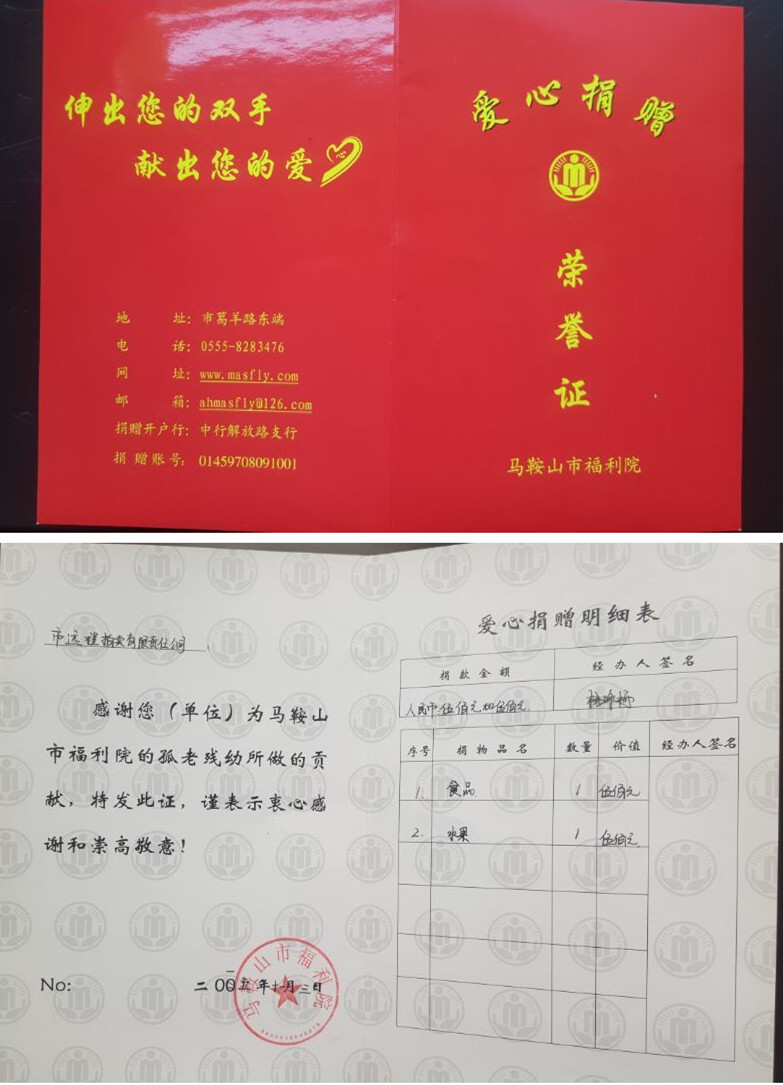 伸出您的双手
献出您的爱心
爱心捐赠
荣
誉
证
马鞍山市福利院
地址：市葛羊路东端
电话：0555-8283476
网址：www.masfly.com
邮箱：ahmasfly@126.com
捐赠开户行：中行解放路支行
捐赠账号：01459708091001
市远程拍卖有限责任公司
感谢您（单位）为马鞍山
市福利院的孤老残幼所做的贡
献，特发此证，谨表示衷心感
谢和崇高敬意！
No:
年十月三日
马鞍山市福利院
爱心捐赠明细表
捐款金额 经办人签名
人民币伍佰元
序号 捐物品名 数量 价值 经办人签名
1. 食品 1 伍佰元
2. 水果 1 伍佰元